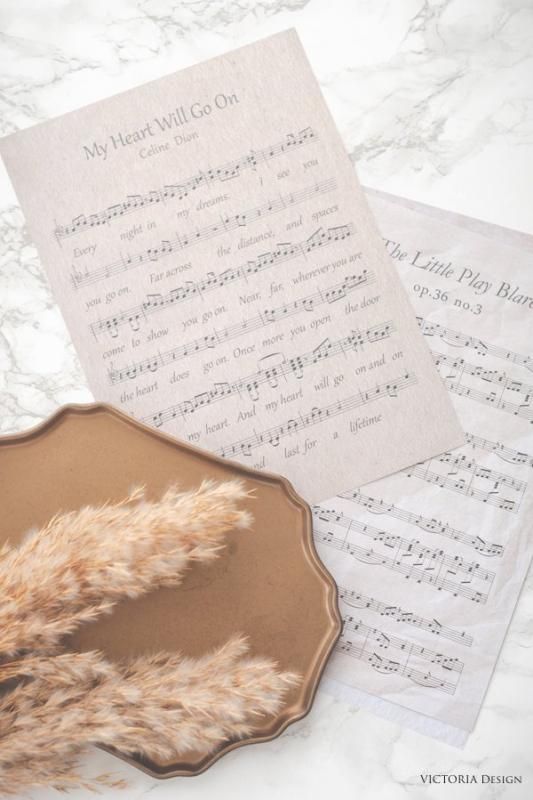 My Heart Will Go On
Celine Dion
Every night in my dreams. I see you
you go on. Far across the distance, and spaces
come to show you go on. Near, far, wherever you are
the heart does go on. Once more you open the door
my heart. And my heart will go on and on
last for a lifetime
The Little Play
op.36 no.3
VICTORIA DESIGN